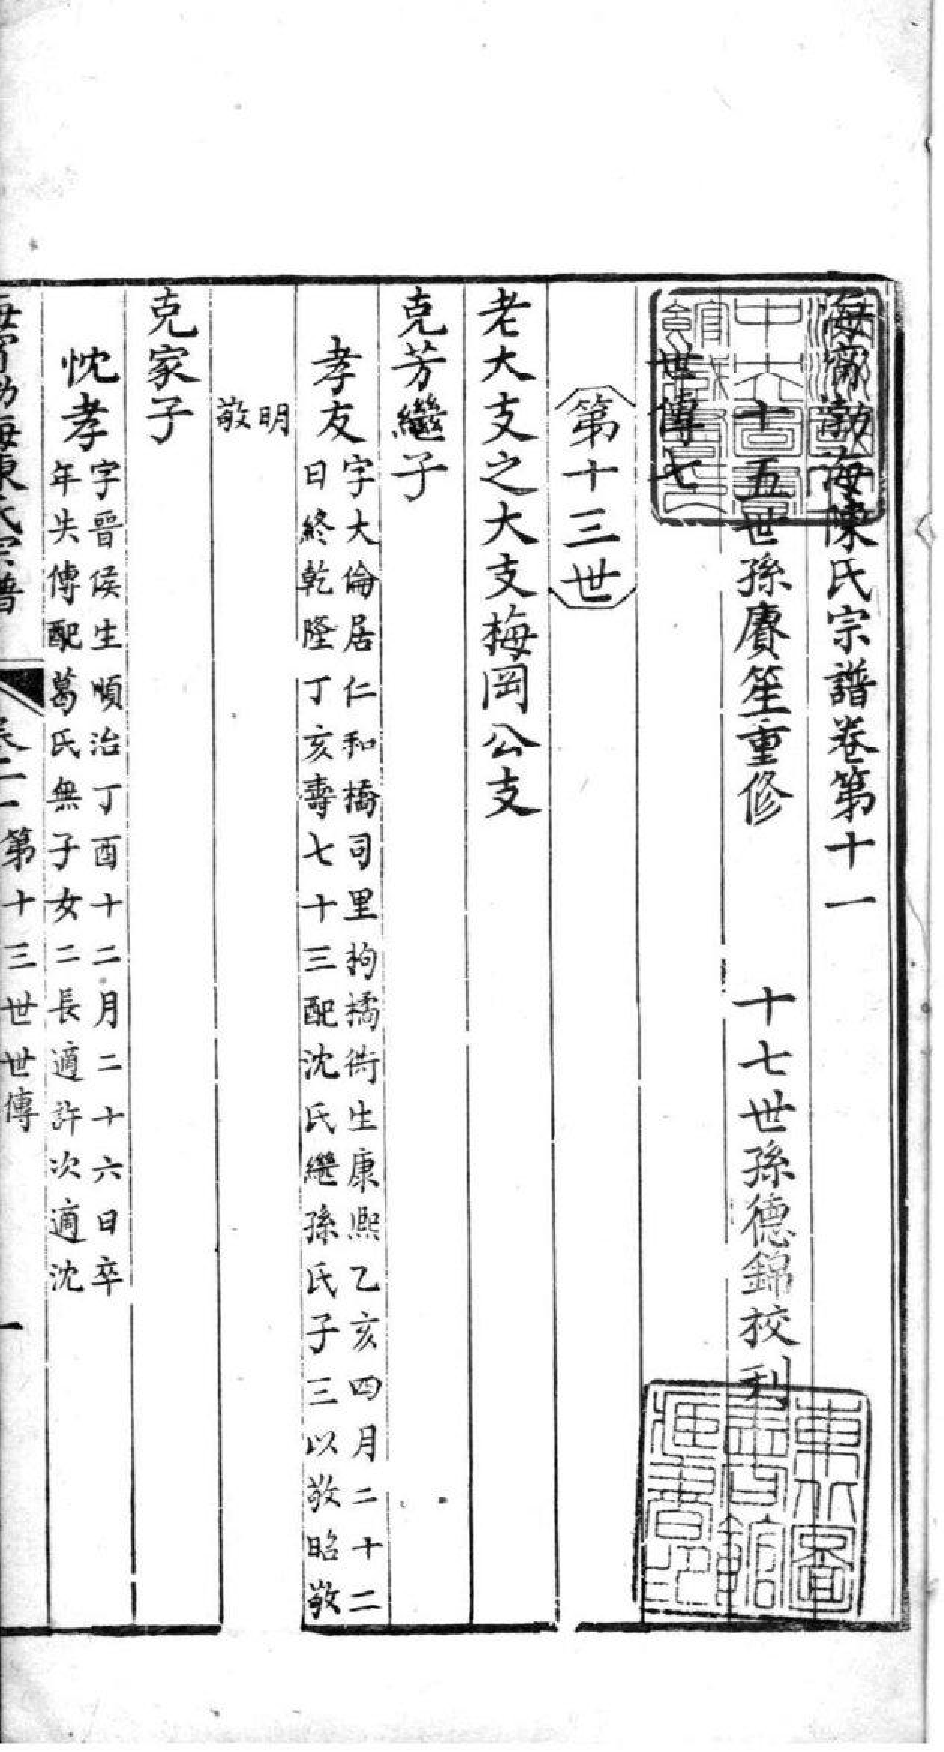 海甯渤海陳氏宗譜卷第十一
十五世孫賡笙重修　十七世孫德錦校刊
世傳七
第十三世
老大支之大支梅岡公支
克芳繼子
孝友
字大倫居仁和橋司里拘橘衖生康熙乙亥四月二十二
日終乾隆丁亥壽七十三配沈氏繼孫氏子三以敬昭敬
明
敬
克家子
忱孝
字晉侯生順治丁酉十二月二十六日卒
年失傳配葛氏無子女二長適許次適沈
海甯渤海陳氏宗譜　卷十一第十三世世傳　一